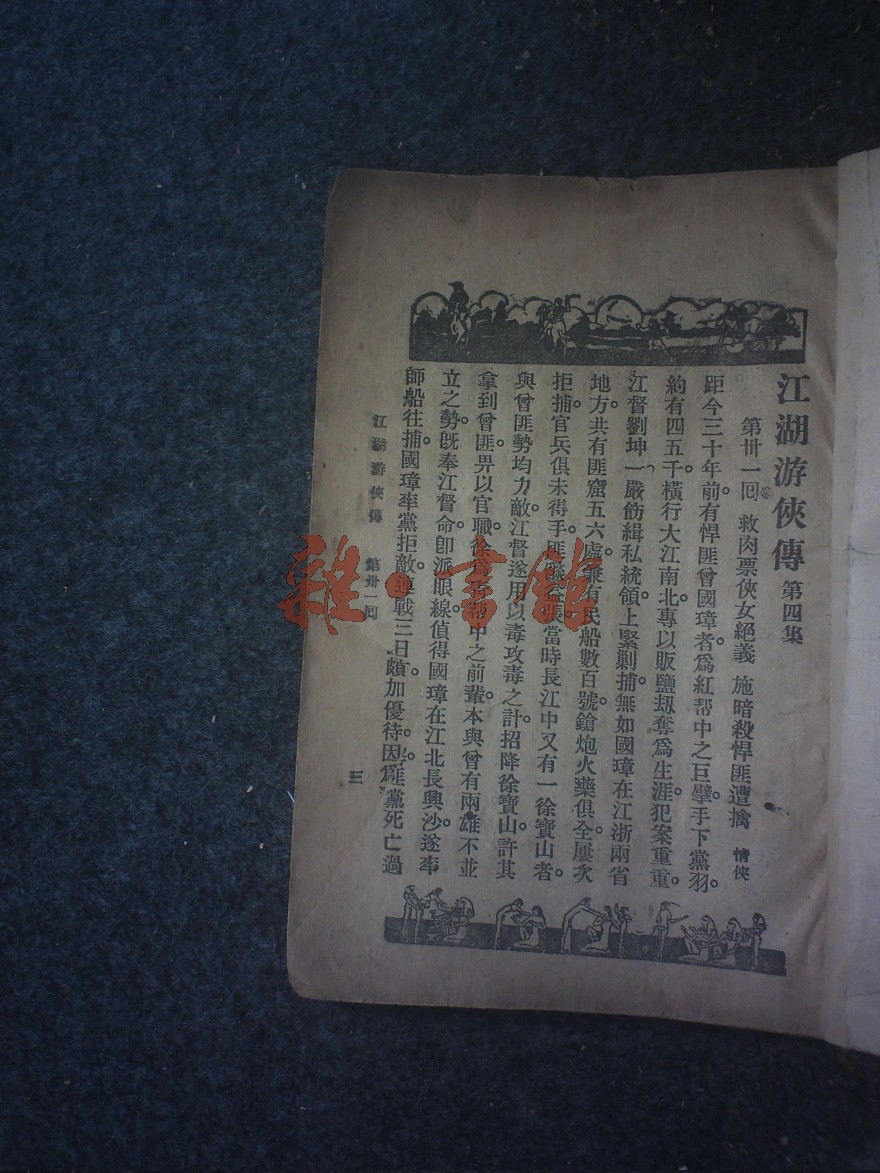 江湖游俠傳 第四集
第卅一囘 救肉票俠女絕義 施暗殺悍匪遭擒 情俠
距今三十年前。有悍匪曾國璋者。爲紅帮中之巨擘。手下黨羽。
約有四五千。橫行大江南北。專以販鹽刼奪爲生涯。犯案重重。
江督劉坤一嚴飭緝私統領。上緊剿捕。無如國璋在江浙兩省
地方。共有匪窟五六處。兼有民船數百號。鎗炮火藥俱全。屢次
拒捕。官兵俱未得手。匪張。當時長江中又有一徐寶山者。
與曾匪勢均力敵。江督遂用以毒攻毒之計。招降徐寶山。許其
拿到曾匪。畀以官職。徐中之前輩。本與曾有兩雄不並
立之勢。旣奉江督命。卽派眼線。偵得國璋在江北長興沙。遂率
師船往捕。國璋率黨拒敵。連戰三日。頗加優待。因爲黨死亡過
江湖游俠傳 第卅一囘
三
雜·書館